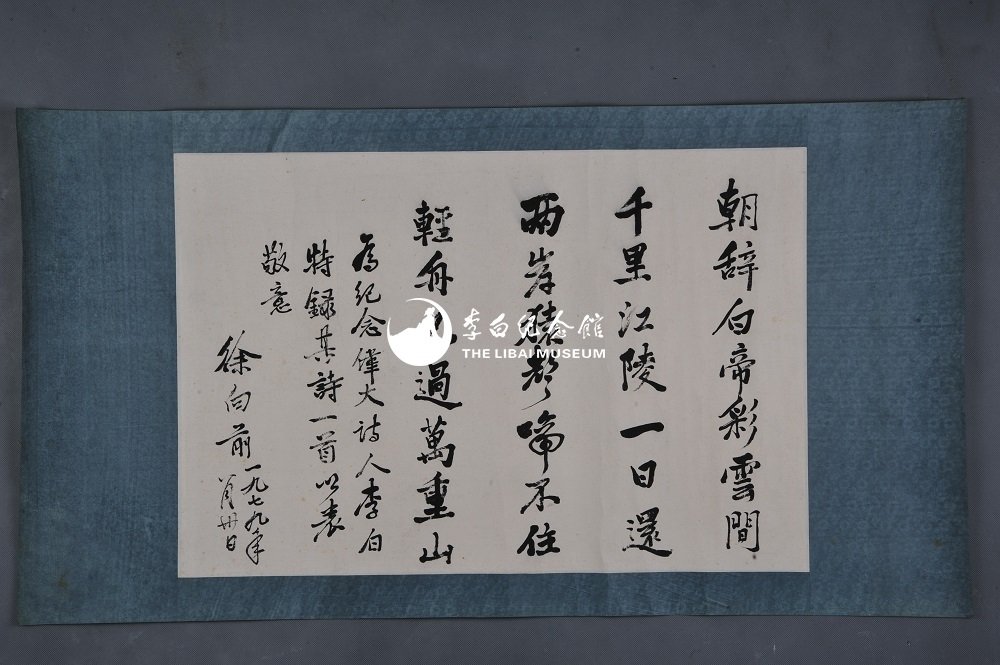 朝辞白帝彩雲間
千里江陵一日還
两岸猿聲啼不住
輕舟已過萬重山
為紀念偉大詩人李白
特録其詩一首以表
敬意
徐向前 一九七九年
八月卅日
李白纪念館
THE LIBAI MUSEUM